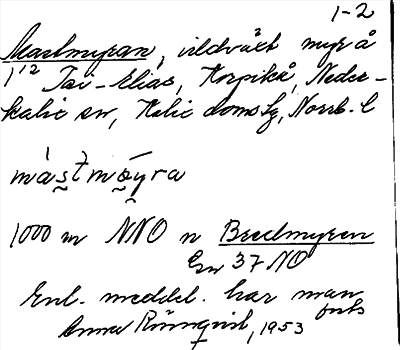 1-2
Mastmyran, vildväxt myr å
1¹² Tai-Elias, Korpikå, Neder-
kalix sn, Kalix domsg, Norrb. l
màstmýra
1000 m NNO n Bredmyren
En 37 NO
Enl. meddel. har man
forts
Anna Rönnqvist, 1953